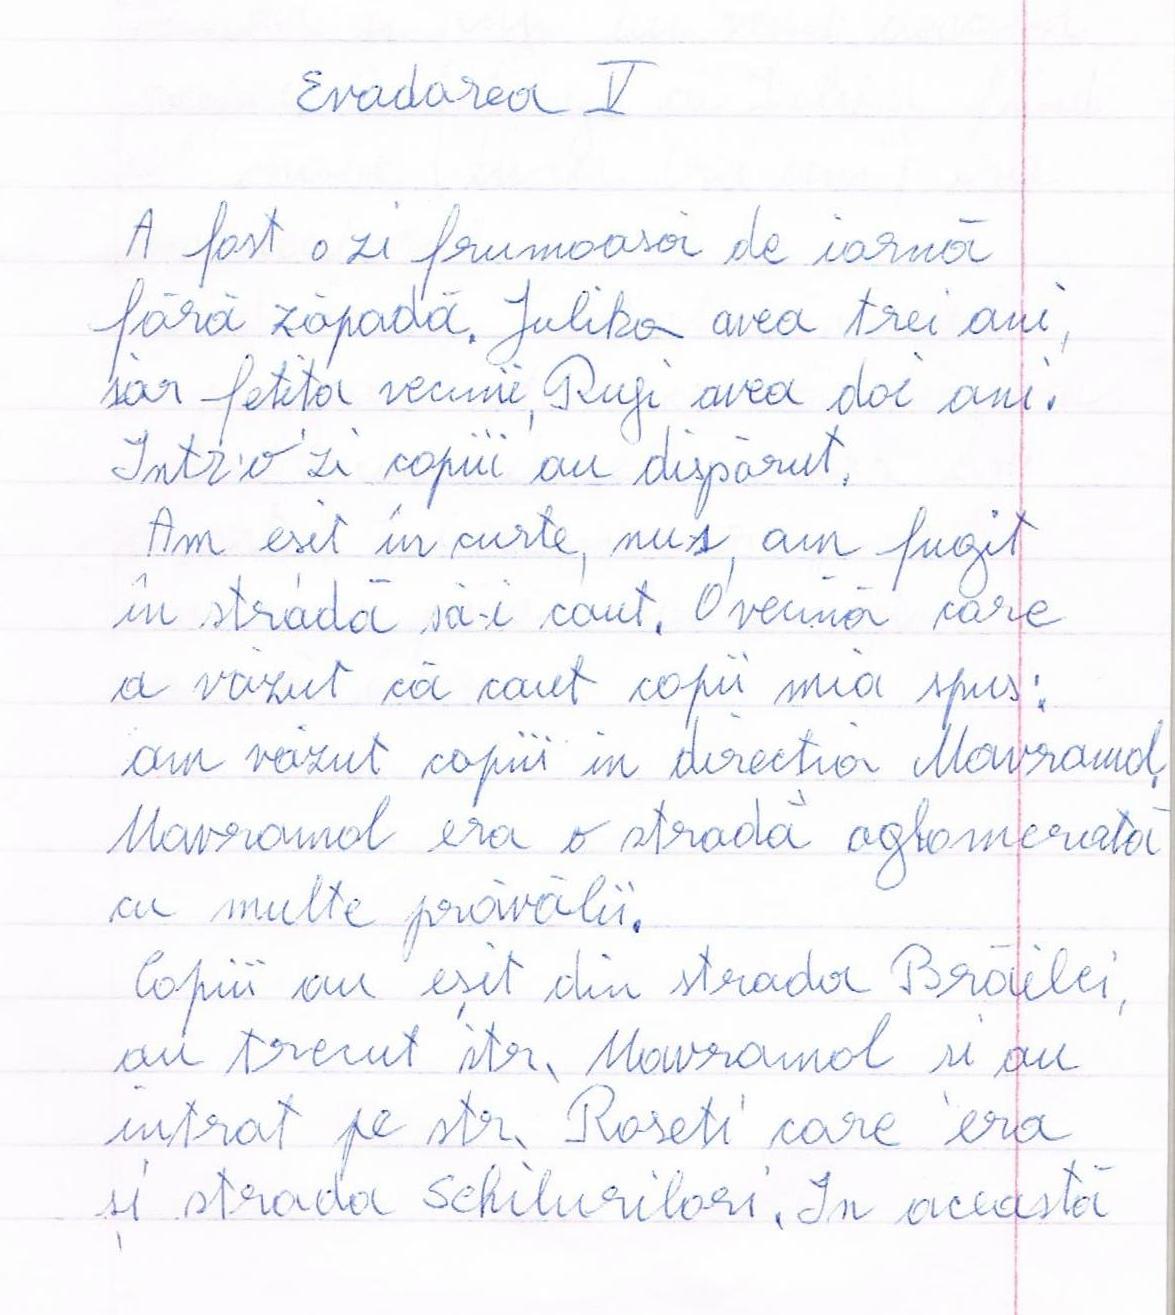 Evadarea V
A fost o zi frumoasă de iarnă
fără zăpadă. Julika avea trei ani,
iar fetita vecinii, Rugi avea doi ani.
Intr-o zi copiii au dispărut.
Am esit în curte, nu-s, am fugit
în stradă să-i caut. O vecină care
a văzut că caut copii mia spus:
am văzut copiii in direcția Mavramol.
Mavramol era o stradă aglomerată
cu multe prăvălii.
Copiii au eșit din strada Brăilei,
au trecut str. Mavramol si au
intrat pe str. Roseti care era
și strada Schilurilori. In această